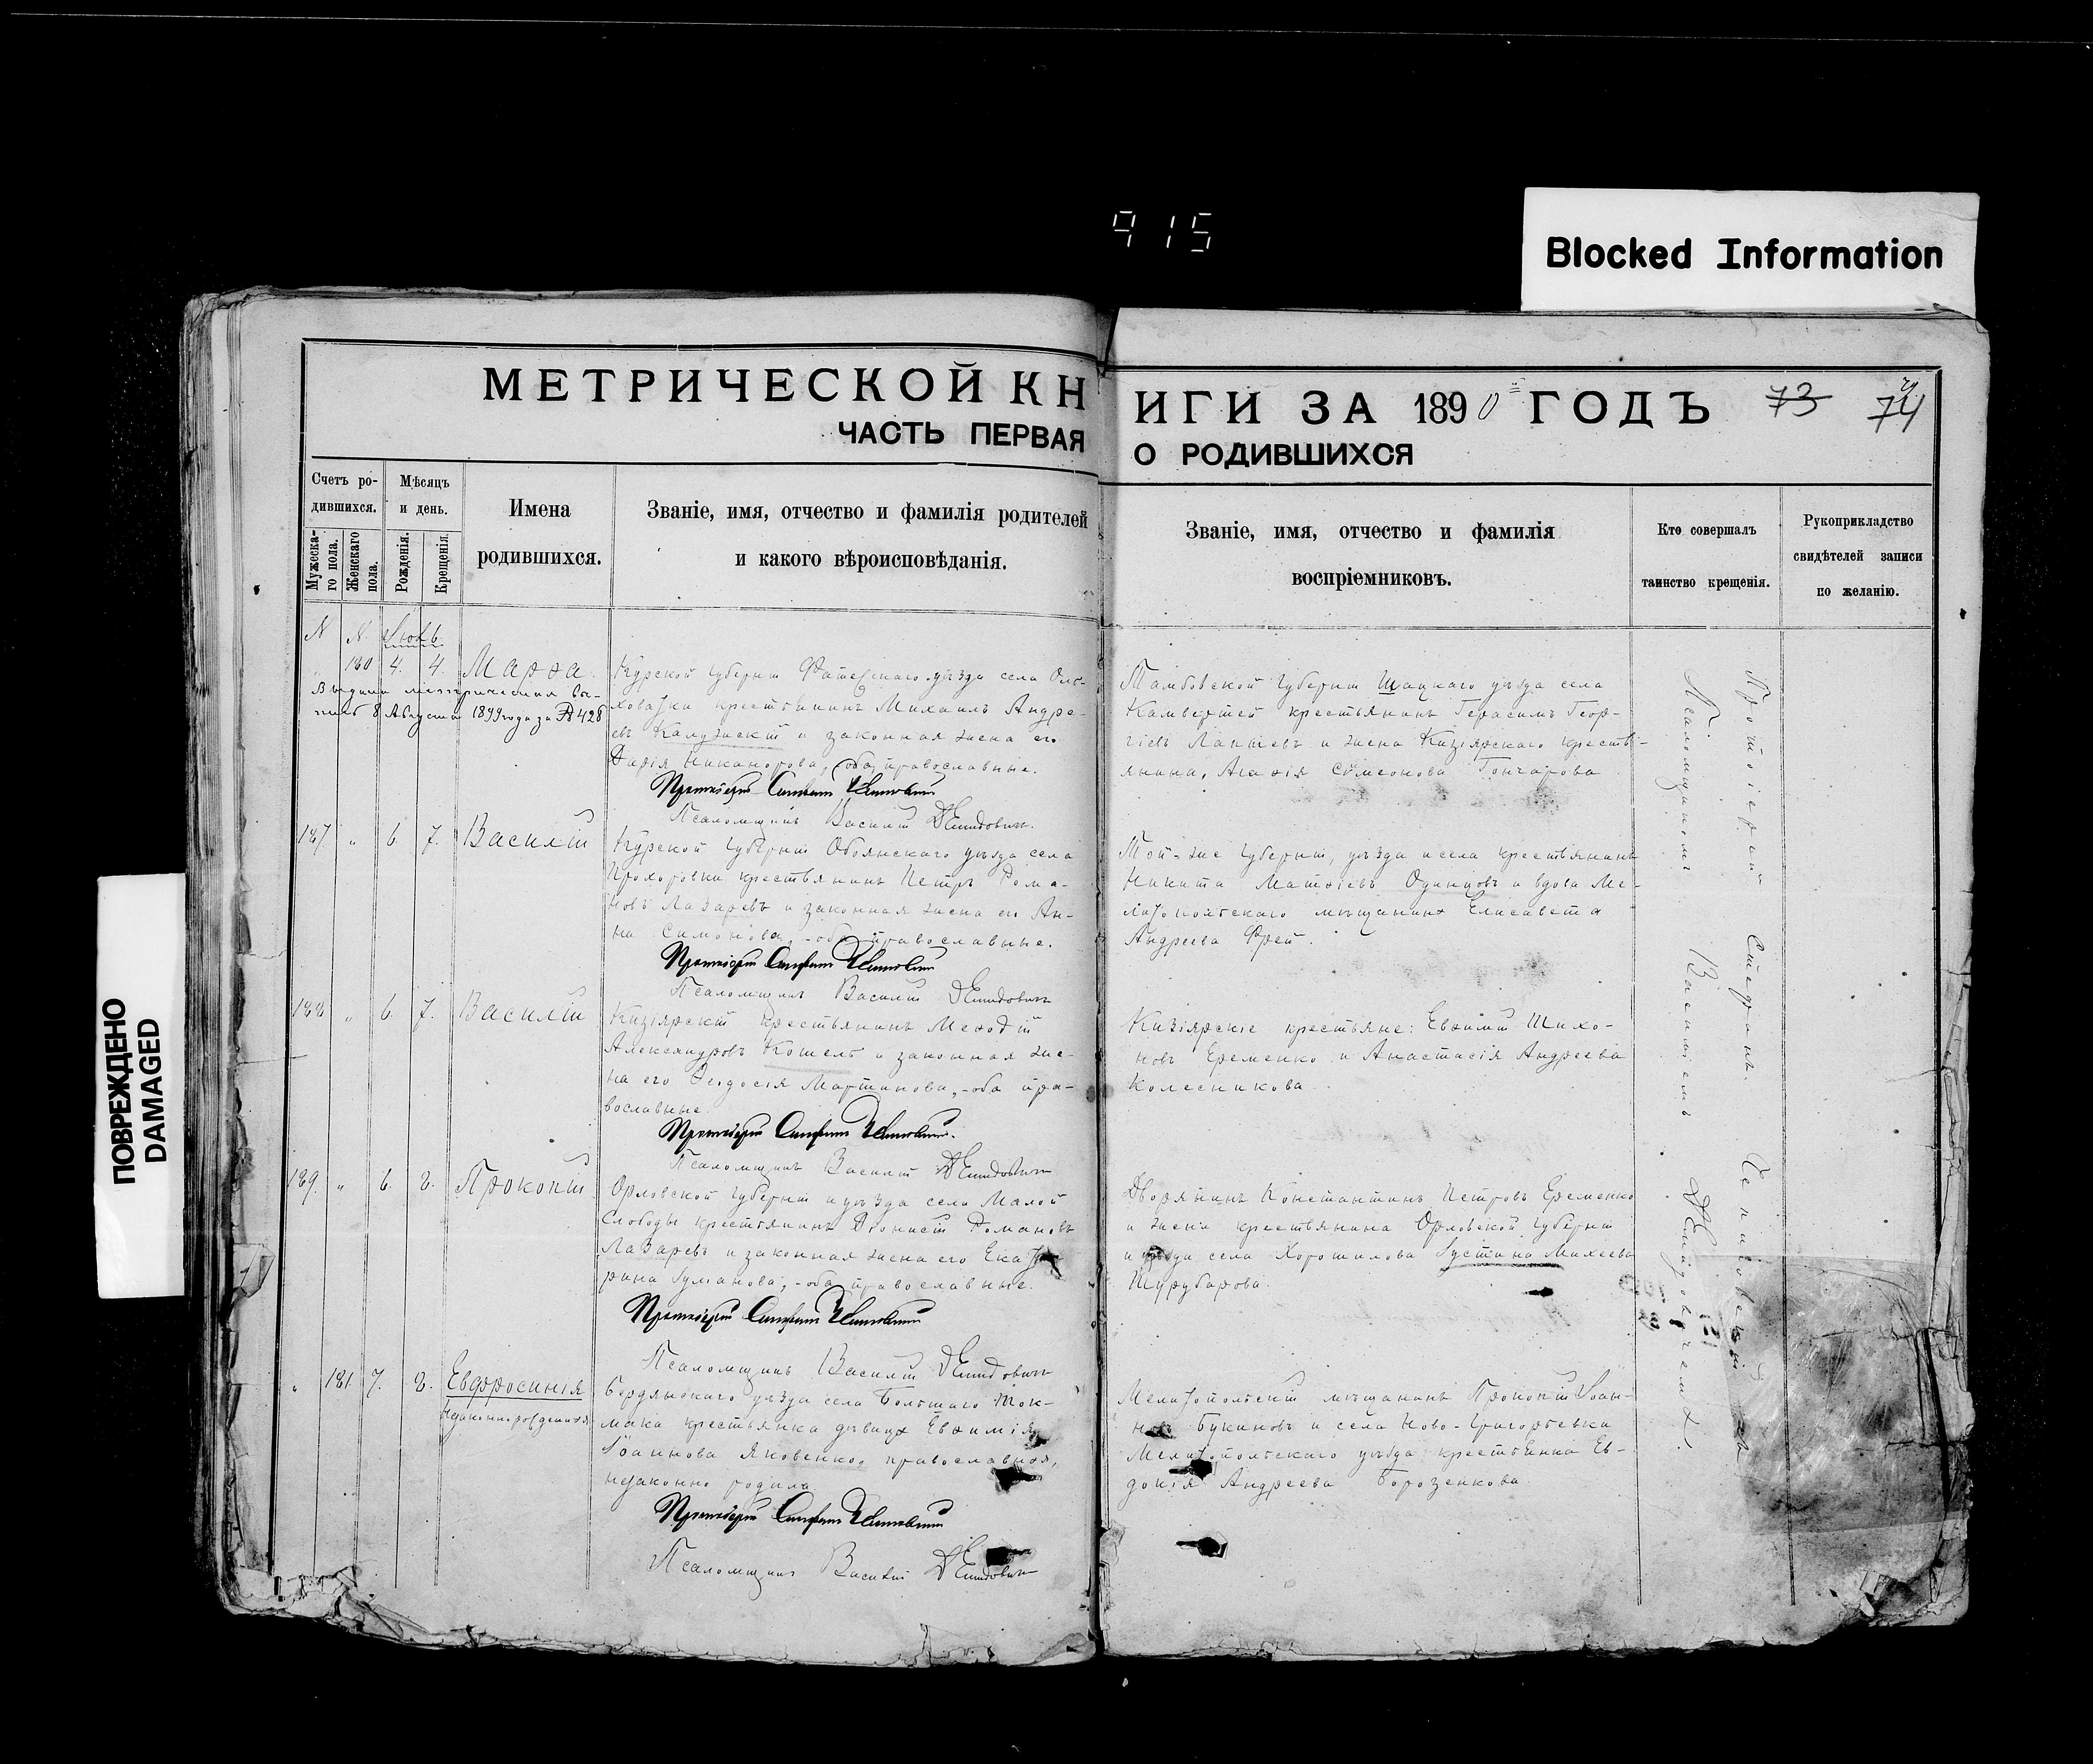 915
Blocked Information
ПОВРЕЖДЕНО
DAMAGED
МЕТРИЧЕСКОЙ КНИГИ ЗА 1890 ГОДЪ
73 74
ЧАСТЬ ПЕРВАЯ О РОДИВШИХСЯ
Счетъ ро-
дившихся.
Мужеска-
го пола.
Женскаго
пола.
Мѣсяцъ
и день.
Рожденія.
Крещенія.
Имена
родившихся.
Званіе, имя, отчество и фамилія родителей
и какого вѣроисповѣданія.
Званіе, имя, отчество и фамилія
воспріемниковъ.
Кто совершалъ
таинство крещенія.
Рукоприкладство
свидѣтелей записи
по желанію.
N N
180 4. 4. Марѳа.
Выдана метрическая вы-
пись 8 Августа 1899 года за № 428
Курской губерніи Фатежскаго уѣзда села Оль-
ховатки крестьянинъ Михаилъ Андре-
евъ и законная жена его
Дарія Никанорова, оба православные.
Псаломщикъ Василій
Тамбовской губерніи Шацкаго уѣзда села
крестьянинъ Герасимъ Геор-
гіевъ Лаптевъ и жена Кизіярскаго кресть-
янина, Агаѳія Сѵмеонова Гончарова
187 " 6. 7. Василій
Курской губерніи Обоянскаго уѣзда села
Прохоровки крестьянинъ Петръ Рома-
новъ Лазаревъ и законная жена его Ан-
на Симонова, - оба православные.
Псаломщикъ Василій
Той-же губерніи, уѣзда и села крестьянинъ
Никита Матѳіевъ Одинцовъ и вдова Ме-
литопольскаго мѣщанина Елисавета
Андреева Фрей.
188 " 6. 7. Василій
Кизіярскій крестьянинъ Меѳодій
Александровъ Кошель и законная же-
на его Ѳеодосія Мартинова, - оба пра-
вославные
Псаломщикъ Василій
Кизіярскіе крестьяне: Евѳимій Тихо-
новъ Еременко и Анастасія Андреева
Колесникова
189. " 6. 8. Прокопій
Орловской губерніи и уѣзда села Малой
Слободы крестьянинъ Діонисій Романовъ
Лазаревъ и законная жена его Екате-
рина, - оба православные.
Псаломщикъ Василій
Дворянинъ Константинъ Петровъ Еременко
и жена крестьянина Орловской губерніи
и уѣзда села Хорошилова Іустина Михеева
Шурубарова.
" 181. 7. 8. Евфросинія
незаконнорожденная
Бердянскаго уѣзда села Большаго Ток-
мака крестьянка дѣвица Евѳимія
Іоаннова Яковенко, православная,
незаконно родила
Псаломщикъ Василій
Мелитопольскій мѣщанинъ Прокопій Іоан-
новъ Букиновъ и села Ново-Григорьевка
Мелитопольскаго уѣзда крестьянка Ев-
докія Андреева Борозенкова.
Протоіерей Стефанъ
Псаломщикомъ Василіемъ